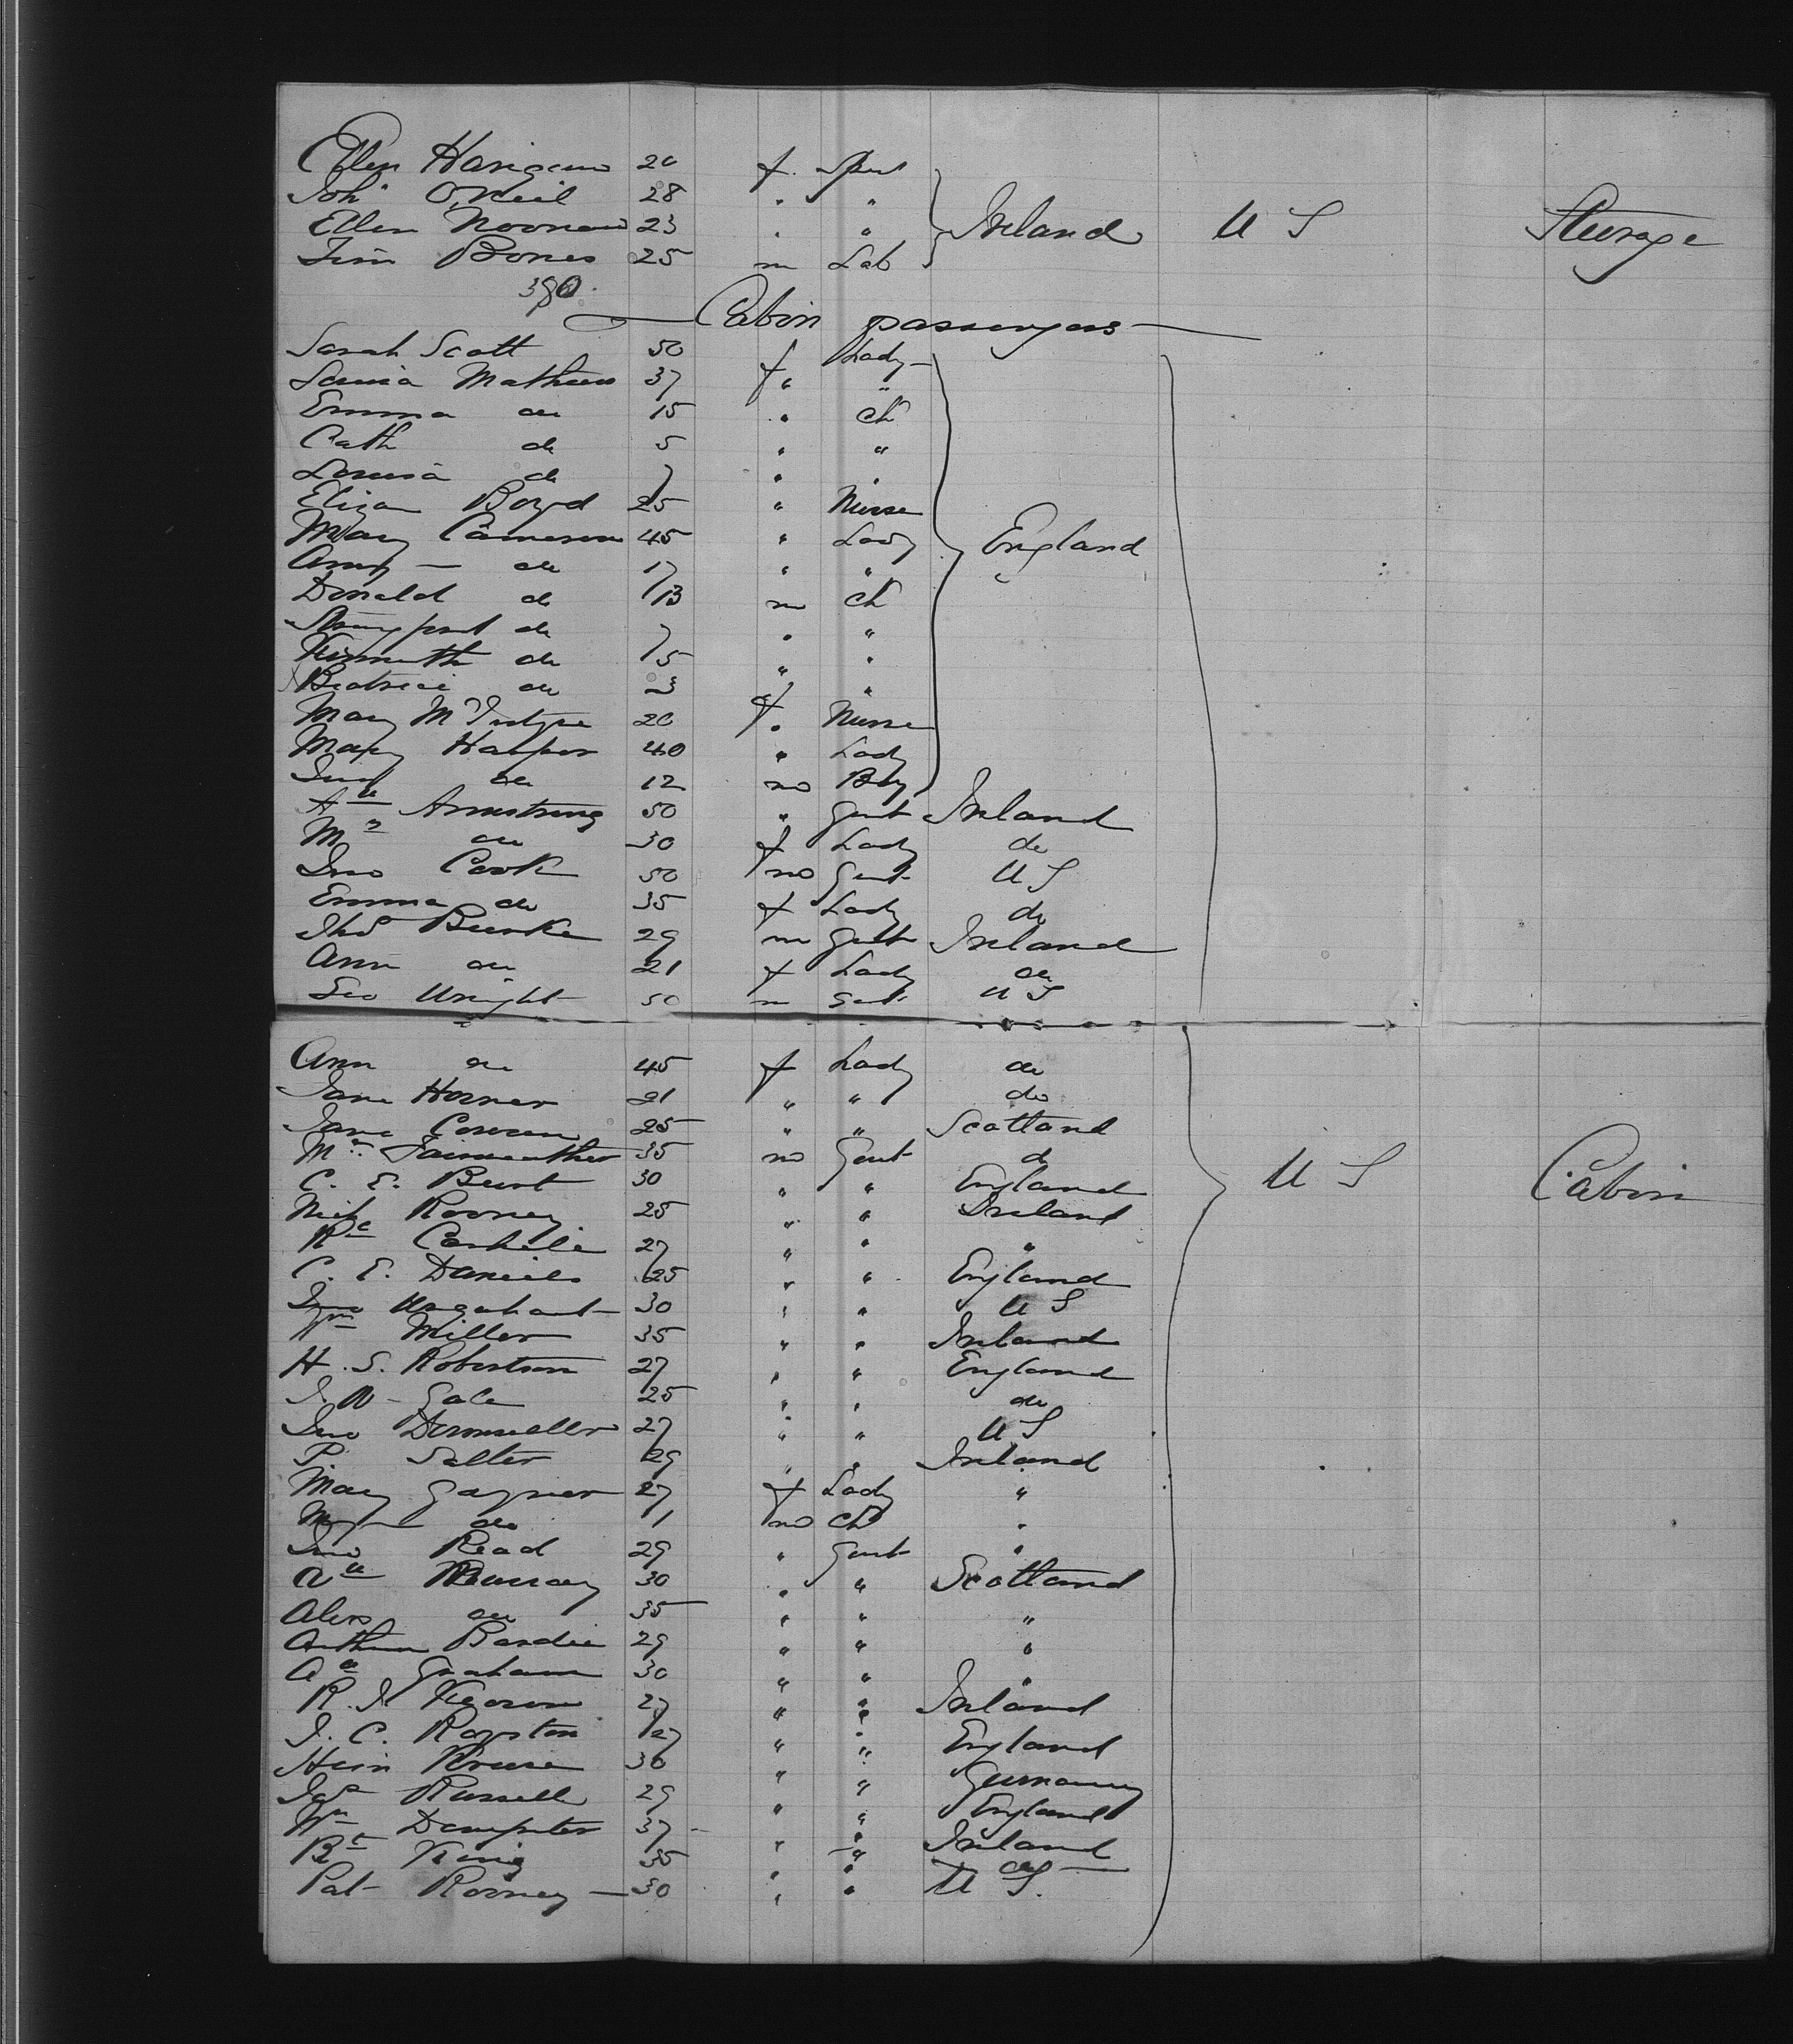 Ellen Harigan 20 f. Spst
Joh O'Neil 28 " "
Ellen Noonan 23 " " Ireland U S Steerage
Jim Bones 25 m Lab
380
Cabin passengers
Sarah Scott 50 f Lady
Louisa Mathews 37 " "
Emma do 15 " Ch
Cath do 5 " "
Louisa do 7 " "
Eliza Boyd 25 " Nurse
Mary Cameron 45 " Lady England
Amy do 17 " "
Donald do 13 m Ch
do 7 " "
Kenneth do 5 " "
Beatrice do 3 " "
Mary McIntyre 20 f Nurse
Mary Harper 40 " Lady
Jno do 12 m Boy
Armstrong 50 " Gent Ireland
Mrs do 30 f Lady do
Jno Cook 50 m Gent U S
Emma do 35 f Lady do
Thos Burke 29 m Gent Ireland
Ann do 21 f Lady do
Geo Wright 50 m Gent U S
Ann do 45 f Lady do
Jane Horner 21 " " do
Jane Cowan 25 " " Scotland
Mr Fairweather 35 m Gent do
C. E. Burt 30 " " England U S Cabin
Rooney 25 " " Ireland
Carlile 27 " " "
C. E. Daniels 25 " " England
Jno Urquhart 30 " " U S
Wm Miller 35 " " Ireland
H. S. Robertson 27 " " England
J. W. Gale 25 " " do
Jno 27 " " U S
P. Salter 29 " " Ireland
Mary Gagner 27 f Lady "
do 1 m Ch "
Jno Read 29 " Gent "
Murray 30 " " Scotland
Alex do 35 " " "
Arthur Bardie 29 " " "
Graham 30 " " "
R. J. 27 " " Ireland
J. C. Royston 27 " " England
Hein Kruse 30 " " Germany
Jas Russell 29 " " England
Wm Dempster 37 " " Ireland
Rt King 35 " " do
Pat Rooney 30 " " U S.